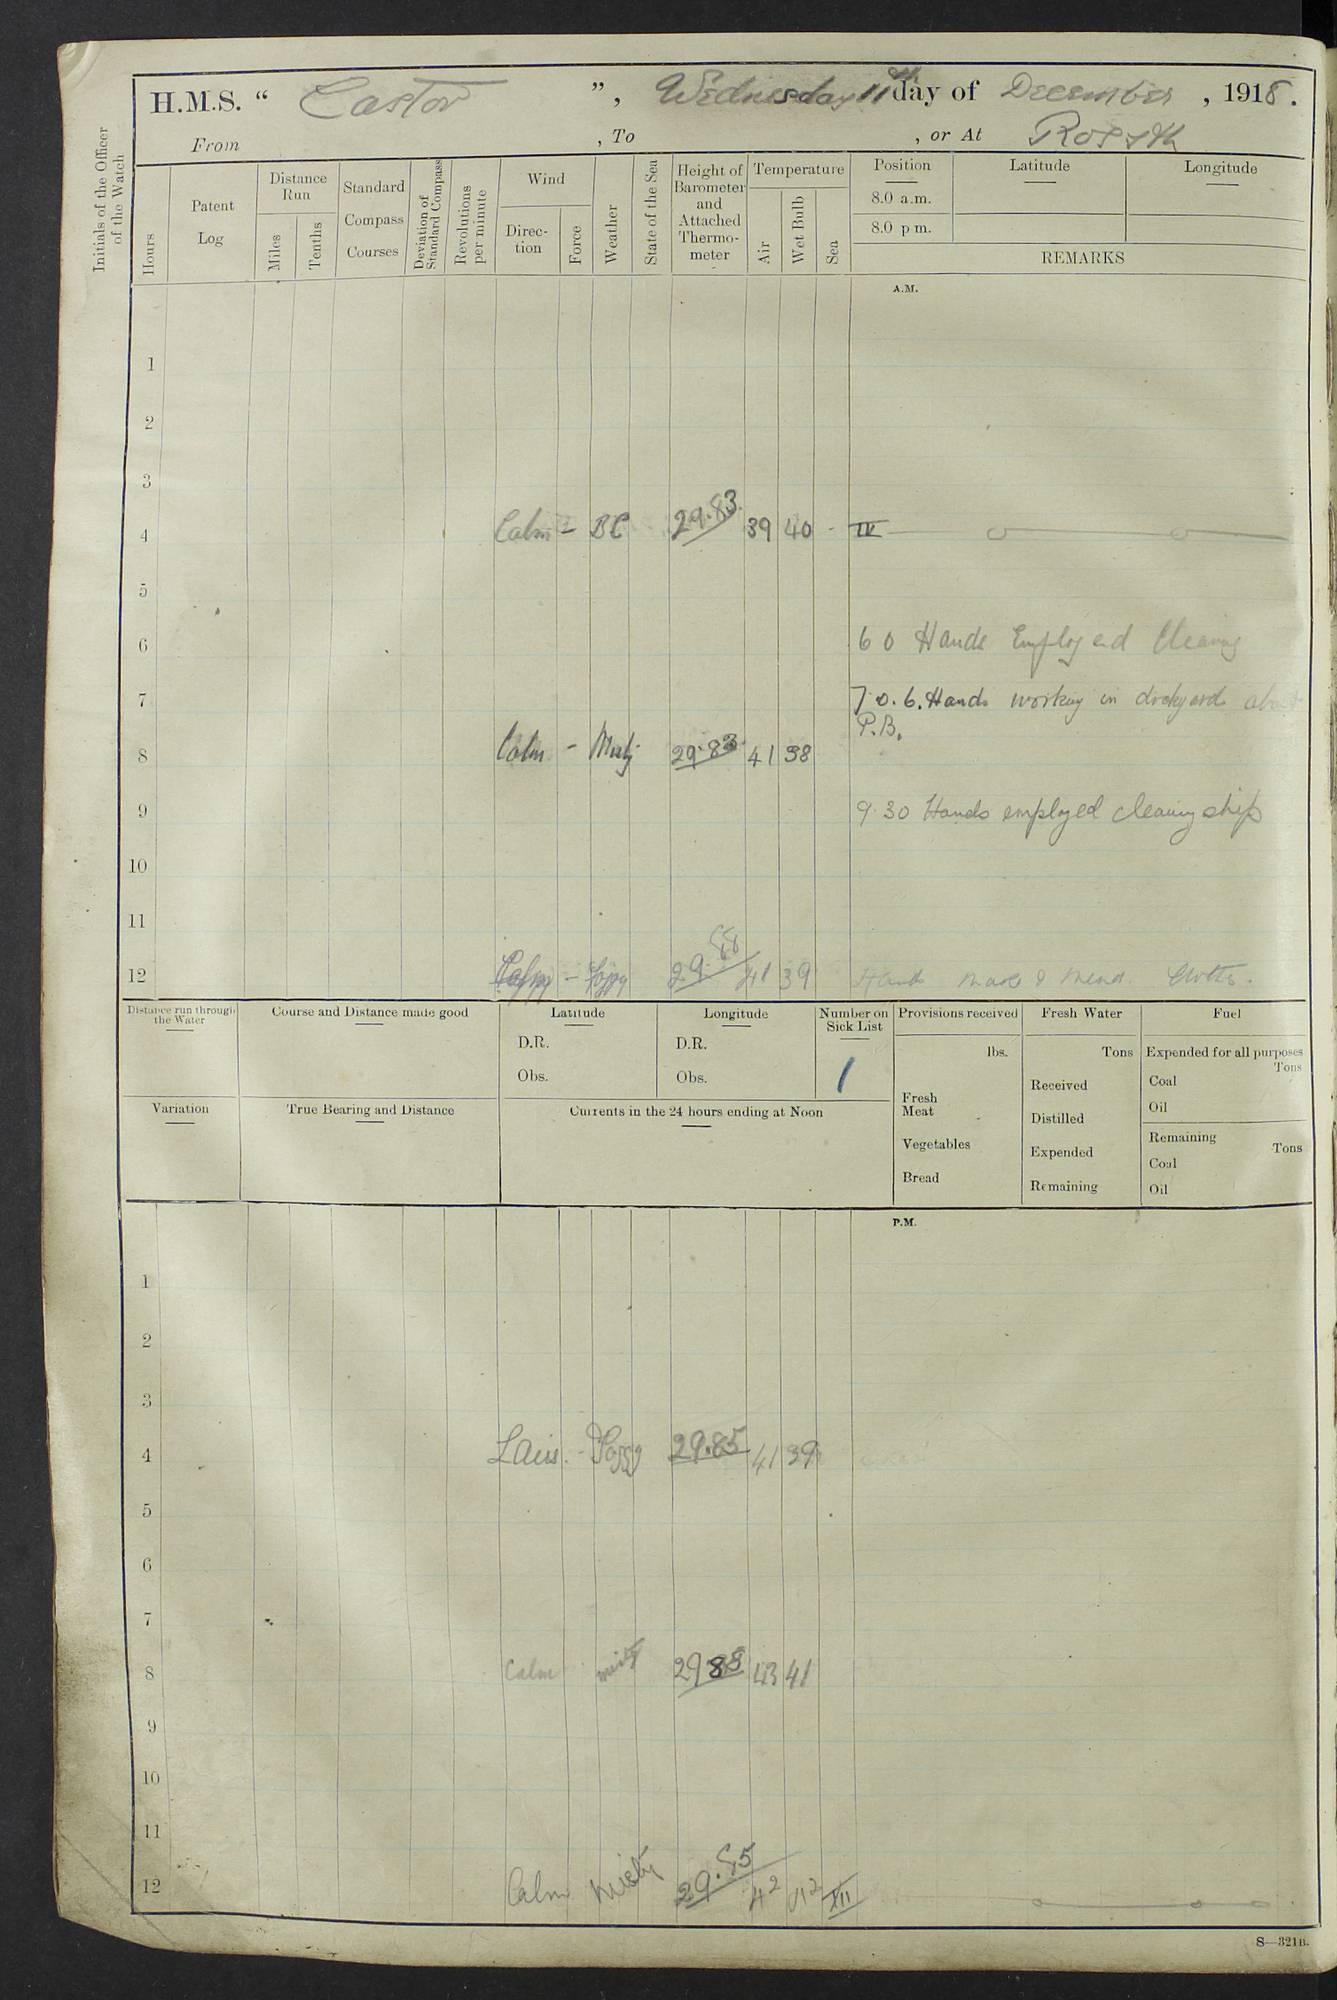 H.M.S. “ Castor ”, Wednesday 11th day of December , 1918.
From , To , or At Rosyth
Initials of the Officer of the Watch
Hours
Patent Log
Distance Run
Miles
Tenths
Standard Compass Courses
Deviation of Standard Compass
Revolutions per minute
Wind
Direction
Force
Weather
State of the Sea
Height of Barometer and Attached Thermometer
Temperature
Air
Wet Bulb
Sea
Position
8.0 a.m.
8.0 p m.
Latitude
Longitude
REMARKS
A.M.
1
2
3
4 Calm - BC 29.83 39 40 - IV
5
6 6 0 Hands Employed Cleaning
7 7.0. 6. Hands working in dockyard about
P.B.
8 Calm - Misty 29.83 41 38
9 9.30 Hands employed cleaning ship
10
11
12 Calm - Foggy 29.88 41 39 Hands make & mend Clothes.
Distance run through the Water
Course and Distance made good
Latitude
D.R.
Obs.
Longitude
D.R.
Obs.
Number on Sick List
1
Provisions received
lbs.
Fresh Meat
Vegetables
Bread
Fresh Water
Tons
Received
Distilled
Expended
Remaining
Fuel
Expended for all purposes
Tons
Coal
Oil
Remaining
Tons
Coal
Oil
Variation
True Bearing and Distance
Currents in the 24 hours ending at Noon
P.M.
1
2
3
4 - Foggy 29.85 41 39
5
6
7
8 Calm misty 29 88 43 41
9
10
11
12 Calm Misty 29.85 42 42 XII
S—321B.